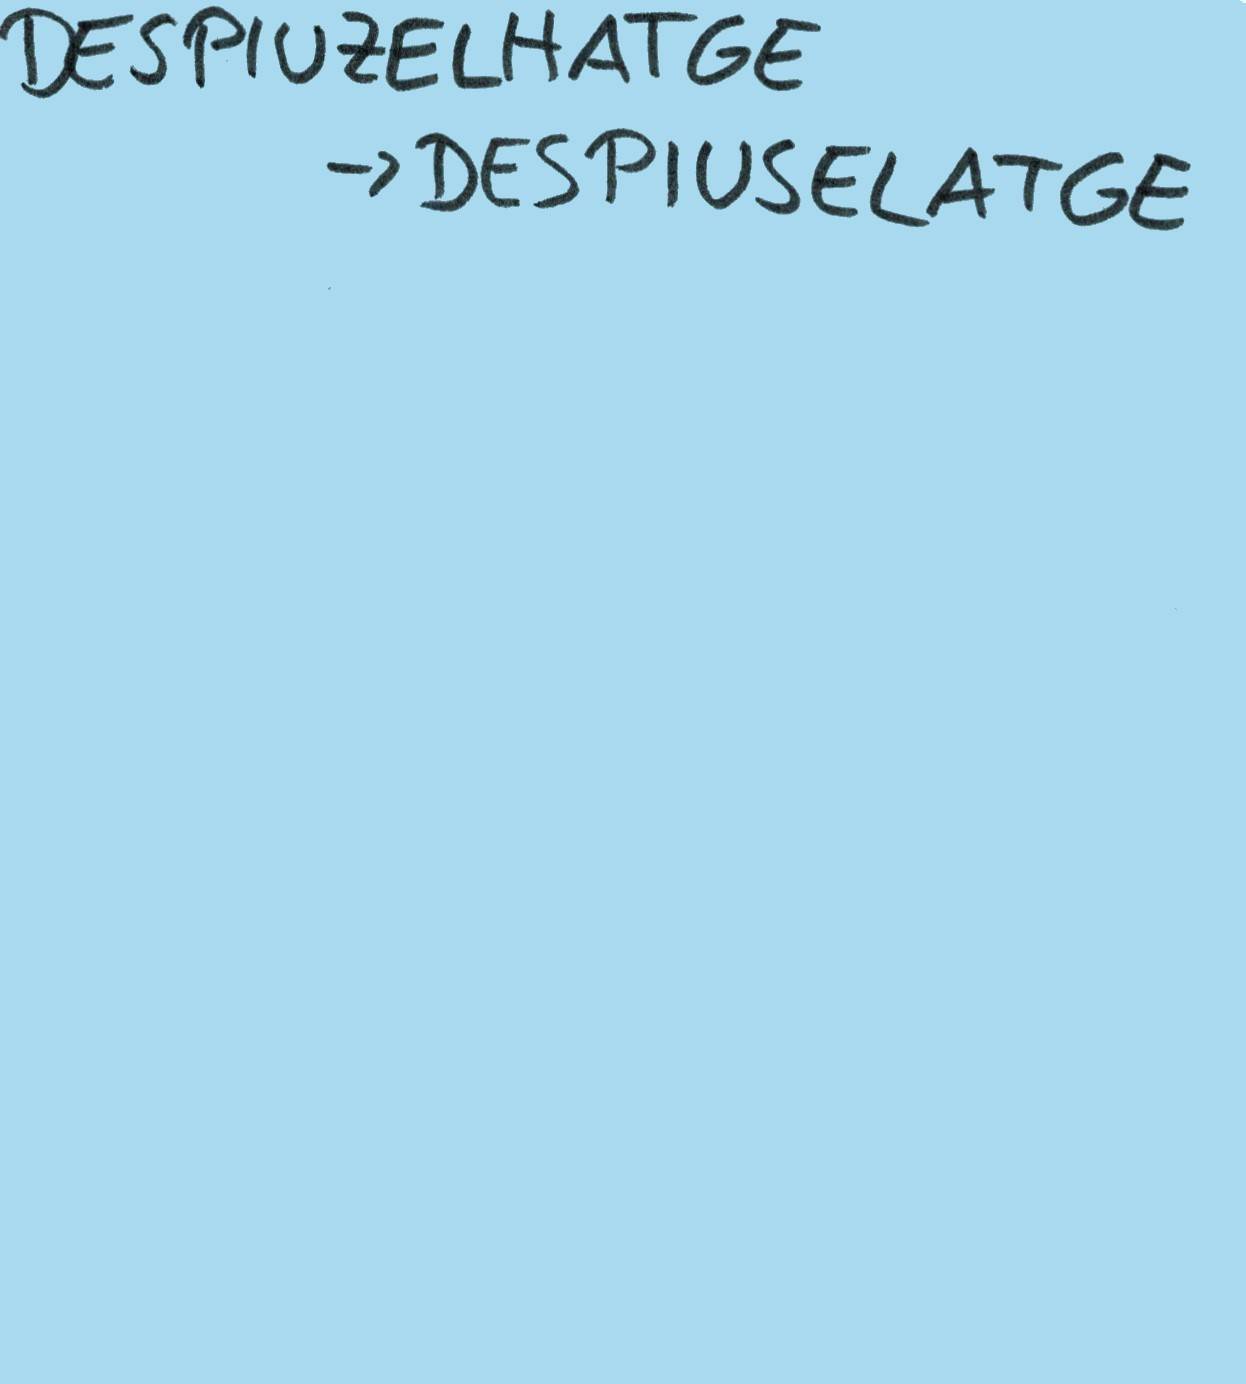 DESPIUZELHATGE
→ DESPIUSELATGE